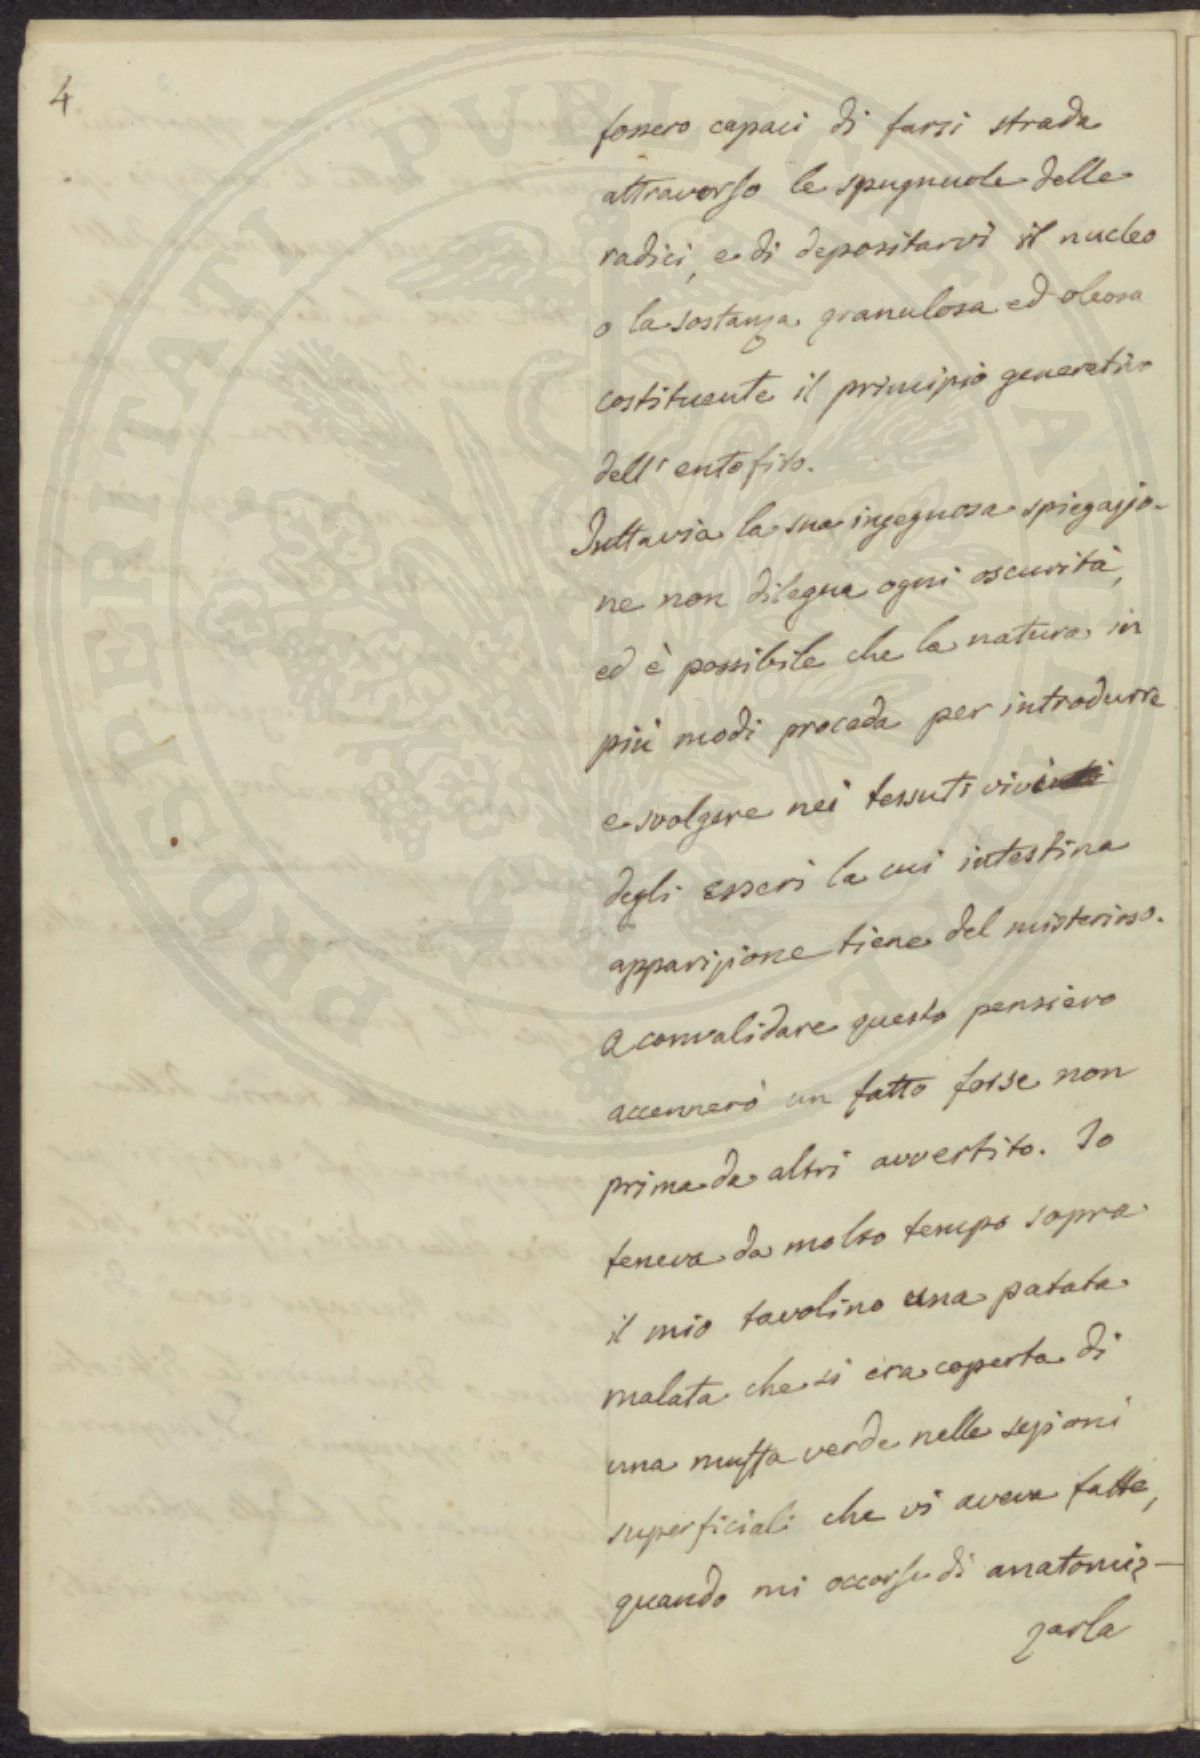 4
fossero capaci di farsi strada
attraverso le spugnuole delle
radici, e di depositarvi il nucleo
o la sostanza granulosa ed oleosa
costituente il principio generativo
dell'entofito.
Tuttavia la sua ingegnosa spiegazio-
ne non dilegua ogni oscurità,
ed è possibile che la natura in
più modi proceda per introdurre
e svolgere nei tessuti vivi
degli esseri la cui intestina
apparizione tiene del misterioso.
A convalidare questo pensiero
accennerò un fatto forse non
prima da altri avvertito. Io
teneva da molto tempo sopra
il mio tavolino una patata
malata che si era coperta di
una muffa verde nelle sezioni
superficiali che vi aveva fatte,
quando mi occorse di anatomiz-
zarla
PROSPERITATI PUBLICAE AUGENDAE